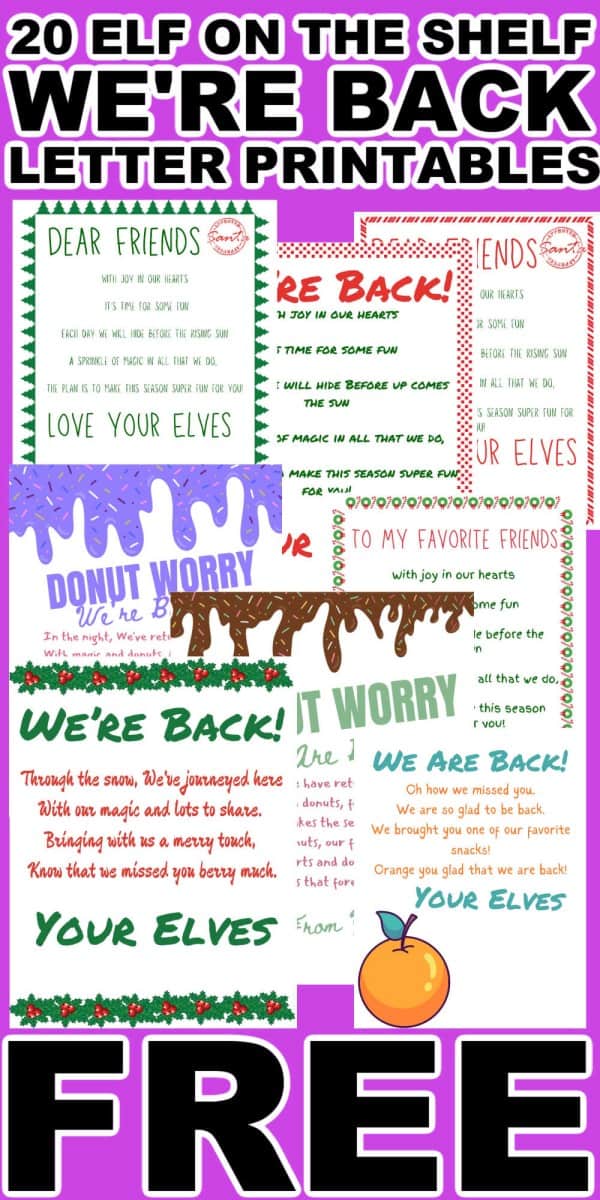 20 ELF ON THE SHELF
WE'RE BACK
LETTER PRINTABLES
DEAR FRIENDS
Santa
WITH JOY IN OUR HEARTS
IT'S TIME FOR SOME FUN
EACH DAY WE WILL HIDE BEFORE THE RISING SUN
A SPRINKLE OF MAGIC IN ALL THAT WE DO,
THE PLAN IS TO MAKE THIS SEASON SUPER FUN FOR YOU!
LOVE YOUR ELVES
RE BACK!
H JOY IN OUR HEARTS
TIME FOR SOME FUN
WILL HIDE BEFORE UP COMES
THE SUN
OF MAGIC IN ALL THAT WE DO,
MAKE THIS SEASON SUPER FUN
FOR YOU!
UR
IENDS
Santa
OUR HEARTS
R SOME FUN
BEFORE THE RISING SUN
IN ALL THAT WE DO,
S SEASON SUPER FUN FOR
UR ELVES
DONUT WORRY
We're B
In the night, We've ret
With magic and donuts,
TO MY FAVORITE FRIENDS
with joy in our hearts
ome fun
de before the
n
all that we do,
this season
r you!
NUT WORRY
are B
have ret
donuts, f
kes the se
uts, our f
rts and do
s that fore
From
We're Back!
Through the snow, We've journeyed here
With our magic and lots to share.
Bringing with us a merry touch,
Know that we missed you berry much.
Your Elves
We Are Back!
Oh how we missed you.
We are so glad to be back.
We brought you one of our favorite
snacks!
Orange you glad that we are back!
Your Elves
FREE